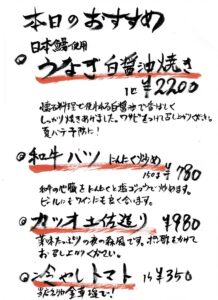 本日のおすすめ
日本鰻使用
うなぎ白醤油焼き
1匹 ¥2200
懐石料理で使われる白醤油で香ばしく
しっかり焼きあげました。ワサビをつけて召し上がりください。
夏バテ予防に!
和牛ハツ にんにく炒め
150g ¥780
和牛の心臓をにんにくと塩コショウで炒めます。
ビールにもワインにも良く合います。
カツオ土佐造り ¥980
お召し上がりください。
冷やしトマト 1ケ ¥350